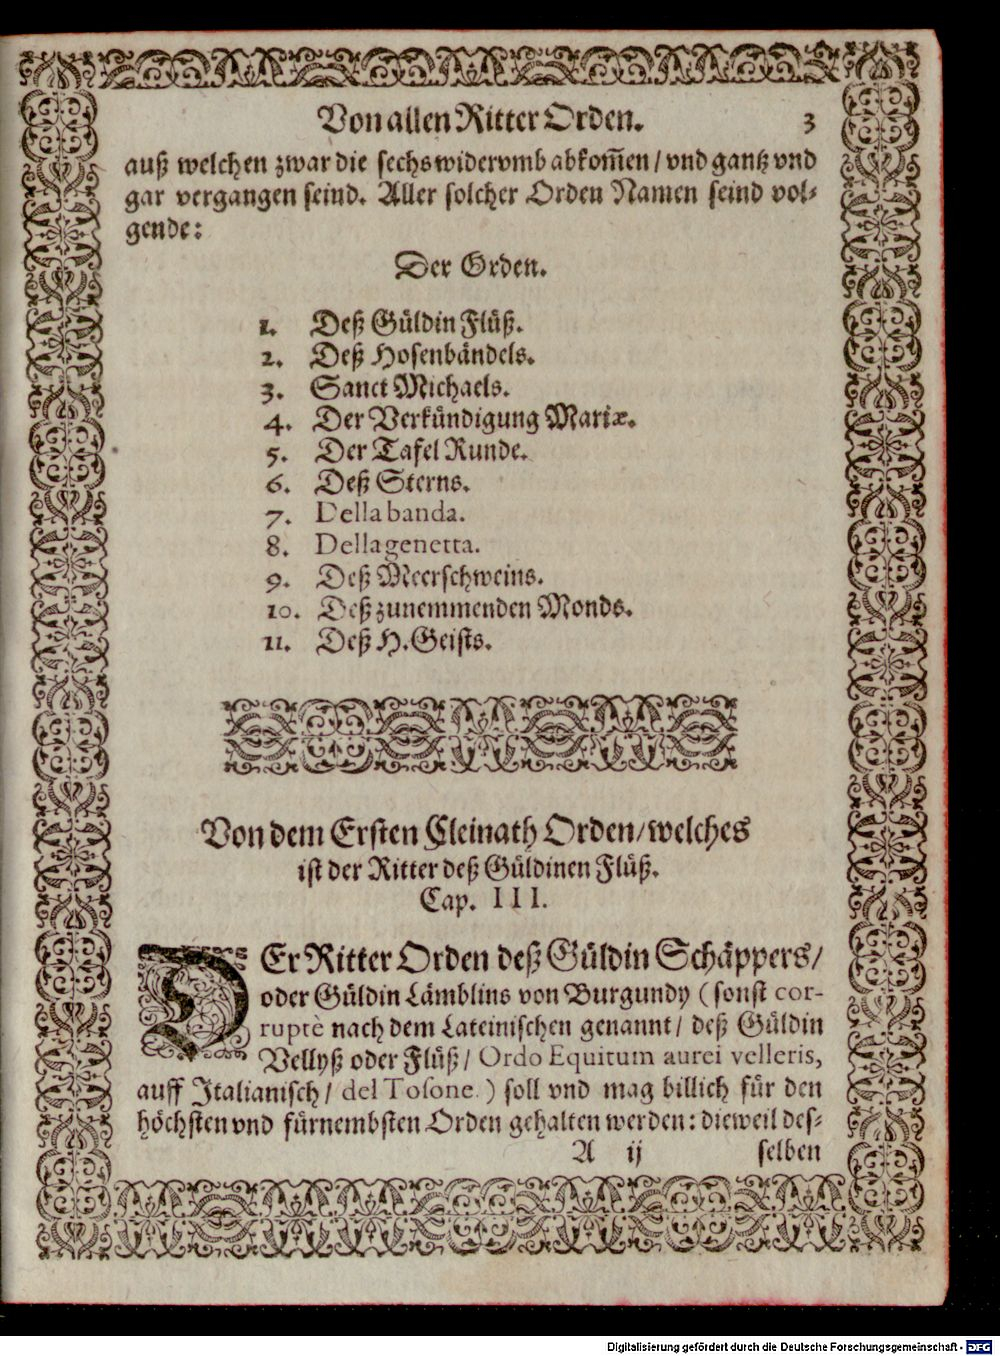 Von allen Ritter Orden. 3
auß welchen zwar die sechs widervmb abkom̃en / vnd gantz vnd
gar vergangen seind. Aller solcher Orden Namen seind vol-
gende:
Der Orden.
1. Deß Güldin Flüß.
2. Deß Hosenbändels.
3. Sanct Michaels.
4. Der Verkündigung Mariæ.
5. Der Tafel Runde.
6. Deß Sterns.
7. Della banda.
8. Della genetta.
9. Deß Meerschweins.
10. Deß zunemmenden Monds.
11. Deß H. Geists.
Von dem Ersten Cleinath Orden / welches
ist der Ritter deß Güldinen Flüß.
Cap. III.
DEr Ritter Orden deß Güldin Schäppers /
oder Güldin Lämblins von Burgundy ( sonst cor-
ruptè nach dem Lateinischen genannt / deß Güldin
Vellyß oder Flüß / Ordo Equitum aurei velleris,
auff Italianisch / del Tosone. ) soll vnd mag billich für den
höchsten vnd fürnembsten Orden gehalten werden: dieweil des-
A ij selben
Digitalisierung gefördert durch die Deutsche Forschungsgemeinschaft - DFG